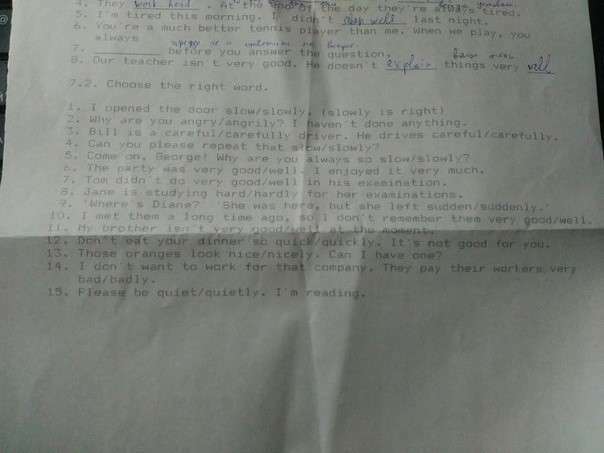 4. They work hard . At the end of the day they're always tired.
5. I'm tired this morning. I didn't sleep well last night.
6. You're a much better tennis player than me. When we play, you
always
7. before you answer the question.
8. Our teacher isn't very good. He doesn't explain things very well
7.2. Choose the right word.
1. I opened the door slow/slowly. (slowly is right)
2. Why are you angry/angrily? I haven't done anything.
3. Bill is a careful/carefully driver. He drives careful/carefully.
4. Can you please repeat that slow/slowly?
5. Come on, George! Why are you always so slow/slowly?
6. The party was very good/well. I enjoyed it very much.
7. Tom didn't do very good/well in his examination.
8. Jane is studying hard/hardly for her examinations.
9. 'Where's Diane?' 'She was here, but she left sudden/suddenly.'
10. I met them a long time ago, so I don't remember them very good/well.
11. My brother isn't very good/well at the moment.
12. Don't eat your dinner so quick/quickly. It's not good for you.
13. Those oranges look nice/nicely. Can I have one?
14. I don't want to work for that company. They pay their workers very
bad/badly.
15. Please be quiet/quietly. I'm reading.